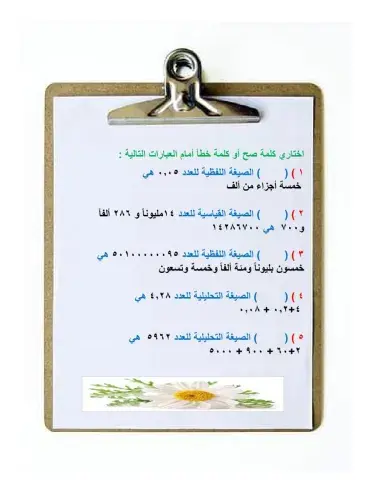 اختاري كلمة صح أو كلمة خطأ أمام العبارات التالية :
١ ) ( ) الصيغة اللفظية للعدد ٠,٠٥ هي
خمسة أجزاء من ألف
٢ ) ( ) الصيغة القياسية للعدد ١٤مليوناً و ٢٨٦ ألفاً
و٧٠٠ هي ١٤٢٨٦٧٠٠
٣ ) ( ) الصيغة اللفظية للعدد ٥٠١٠٠٠٠٠٩٥ هي
خمسون بليوناً ومئة ألفاً وخمسة وتسعون
٤ ) ( ) الصيغة التحليلية للعدد ٤,٢٨ هي
٤+٠,٢ + ٠,٠٨
٥ ) ( ) الصيغة التحليلية للعدد ٥٩٦٢ هي
٢+٦٠ + ٩٠٠ + ٥٠٠٠